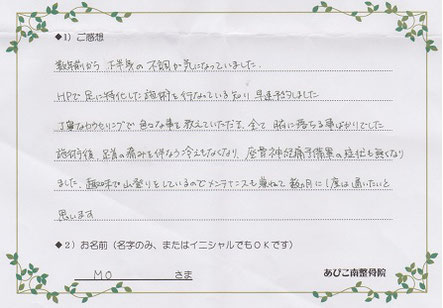 ◆1）ご感想
数年前から 下半身の 不調が気になっていました.
HPで足に特化した施術を行なっている知り 早速予約しました
丁寧なカウンセリングで 色々な事を教えていただき、全て 腑に落ちる事ばかりでした
施術後、足首の痛みを伴なう冷えもなくなり、座骨神経痛予備軍の症状も無くなり
ました. 趣味で山登りをしているのでメンテナンスも兼ねて数ヵ月に1度は通いたいと
思います
◆2）お名前（名字のみ、またはイニシャルでもＯＫです）
MO さま
あびこ南整骨院